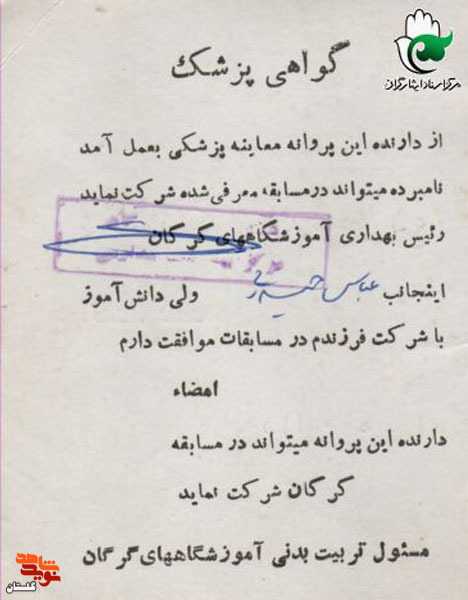 مرکز اسناد ایثارگران
گواهی پزشک
از دارنده این پروانه معاینه پزشکی بعمل آمد
نامبرده میتواند در مسابقه معرفی شده شرکت نماید
رئیس بهداری آموزشگاههای گرگان
اینجانب عباس ولی دانش آموز
با شرکت فرزندم در مسابقات موافقت دارم
امضاء
دارنده این پروانه میتواند در مسابقه
گرگان شرکت نماید
مسئول تربیت بدنی آموزشگاههای گرگان
نوید شاهد
گلستان